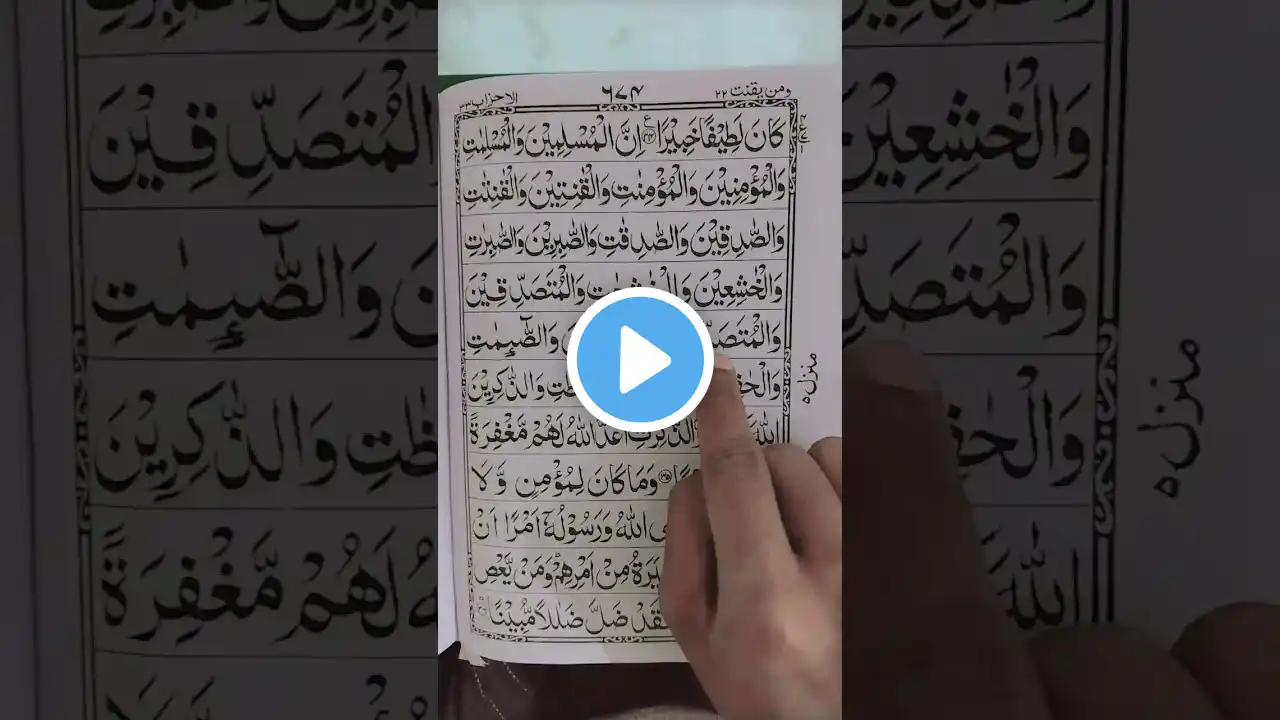 ومن یقنت ۲۲
٦٧٤
الاحزاب ٣٣
كَانَ لَطِيْفًا خَبِيْرًا ۝٣٤ اِنَّ الْمُسْلِمِيْنَ وَالْمُسْلِمٰتِ
وَالْمُؤْمِنِيْنَ وَالْمُؤْمِنٰتِ وَالْقٰنِتِيْنَ وَالْقٰنِتٰتِ
وَالصّٰدِقِيْنَ وَالصّٰدِقٰتِ وَالصّٰبِرِيْنَ وَالصّٰبِرٰتِ
وَالْخٰشِعِيْنَ وَالْمُتَصَدِّقِيْنَ
وَالصّٰٓئِمٰتِ
وَالذّٰكِرِيْنَ
اللّٰهَ وَّالذّٰكِرٰتِ اَعَدَّ اللّٰهُ لَهُمْ مَّغْفِرَةً
۝٣٥ وَمَا كَانَ لِمُؤْمِنٍ وَّلَا
اللّٰهُ وَرَسُوْلُهٗٓ اَمْرًا اَنْ
مِنْ اَمْرِهِمْ ؕ وَمَنْ يَّعْصِ
ضَلَّ ضَلٰلًا مُّبِيْنًا
منزل ٥